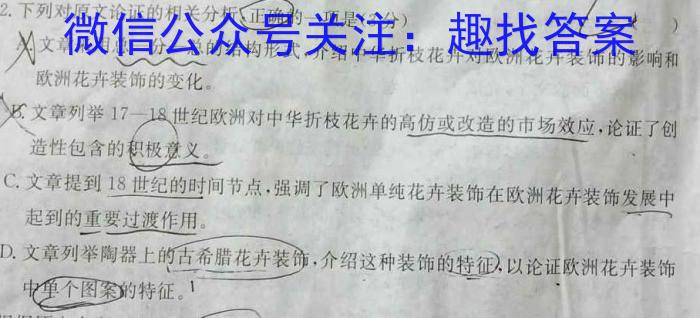 2.下列对原文论证的相关分析,正确的一项是(3分)( )
微信公众号关注：趣找答案
A.文章 总 分 总的结构形式,介绍中华折枝花卉对欧洲花卉装饰的影响和
欧洲花卉装饰的变化。
B.文章列举17—18世纪欧洲对中华折枝花卉的高仿或改造的市场效应,论证了创
造性包含的积极意义。
C.文章提到18世纪的时间节点,强调了欧洲单纯花卉装饰在欧洲花卉装饰发展中
起到的重要过渡作用。
D.文章列举陶器上的古希腊花卉装饰,介绍这种装饰的特征,以论证欧洲花卉装饰
中单个图案的特征。